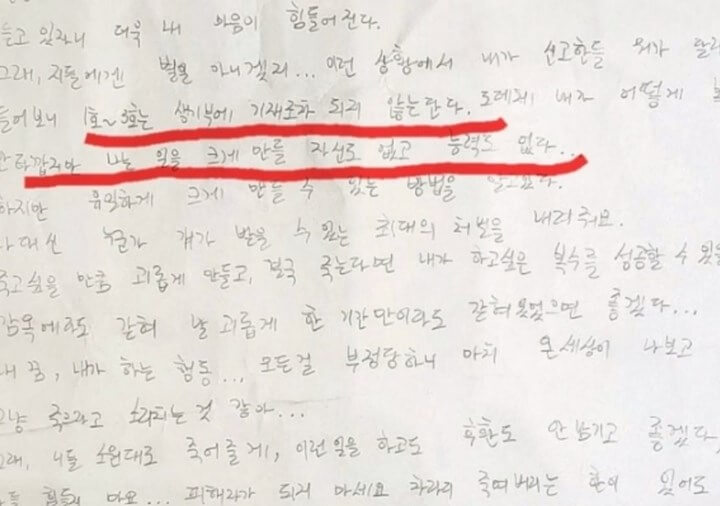 듣고 있자니 더욱 내 마음이 힘들어진다.
그래, 지들에겐 별일 아니겠지... 이런 상황에서 내가 신고한들 뭐가 달라
들어보니 1호~3호는 생기부에 기재조차 되지 않는단다. 도대체 내가 어떻게
안타깝지만 나는 일을 크게 만들 자신도 없고 능력도 없다...
하지만 유일하게 크게 만들 수 있는 방법을 알고있다.
나 대신 누군가 걔가 받을 수 있는 최대의 처벌을 내려줘요.
죽고싶을 만큼 괴롭게 만들고, 결국 죽는다면 내가 하고싶은 복수를 성공할 수 있을
감옥에라도 갇혀 날 괴롭게 한 기간만이라도 갇혀있었으면 좋겠다...
내 꿈, 내가 하는 행동... 모든걸 부정당하니 마치 온세상이 나보고
그냥 죽으라고 소리치는 것 같아...
그래, 니들 소원대로 죽어줄게, 이런일을 하고도 후환도 안 남기고 좋겠다,
힘들지 마요... 피해자가 되지 마세요 차라리 죽여버리는 한이 있어도